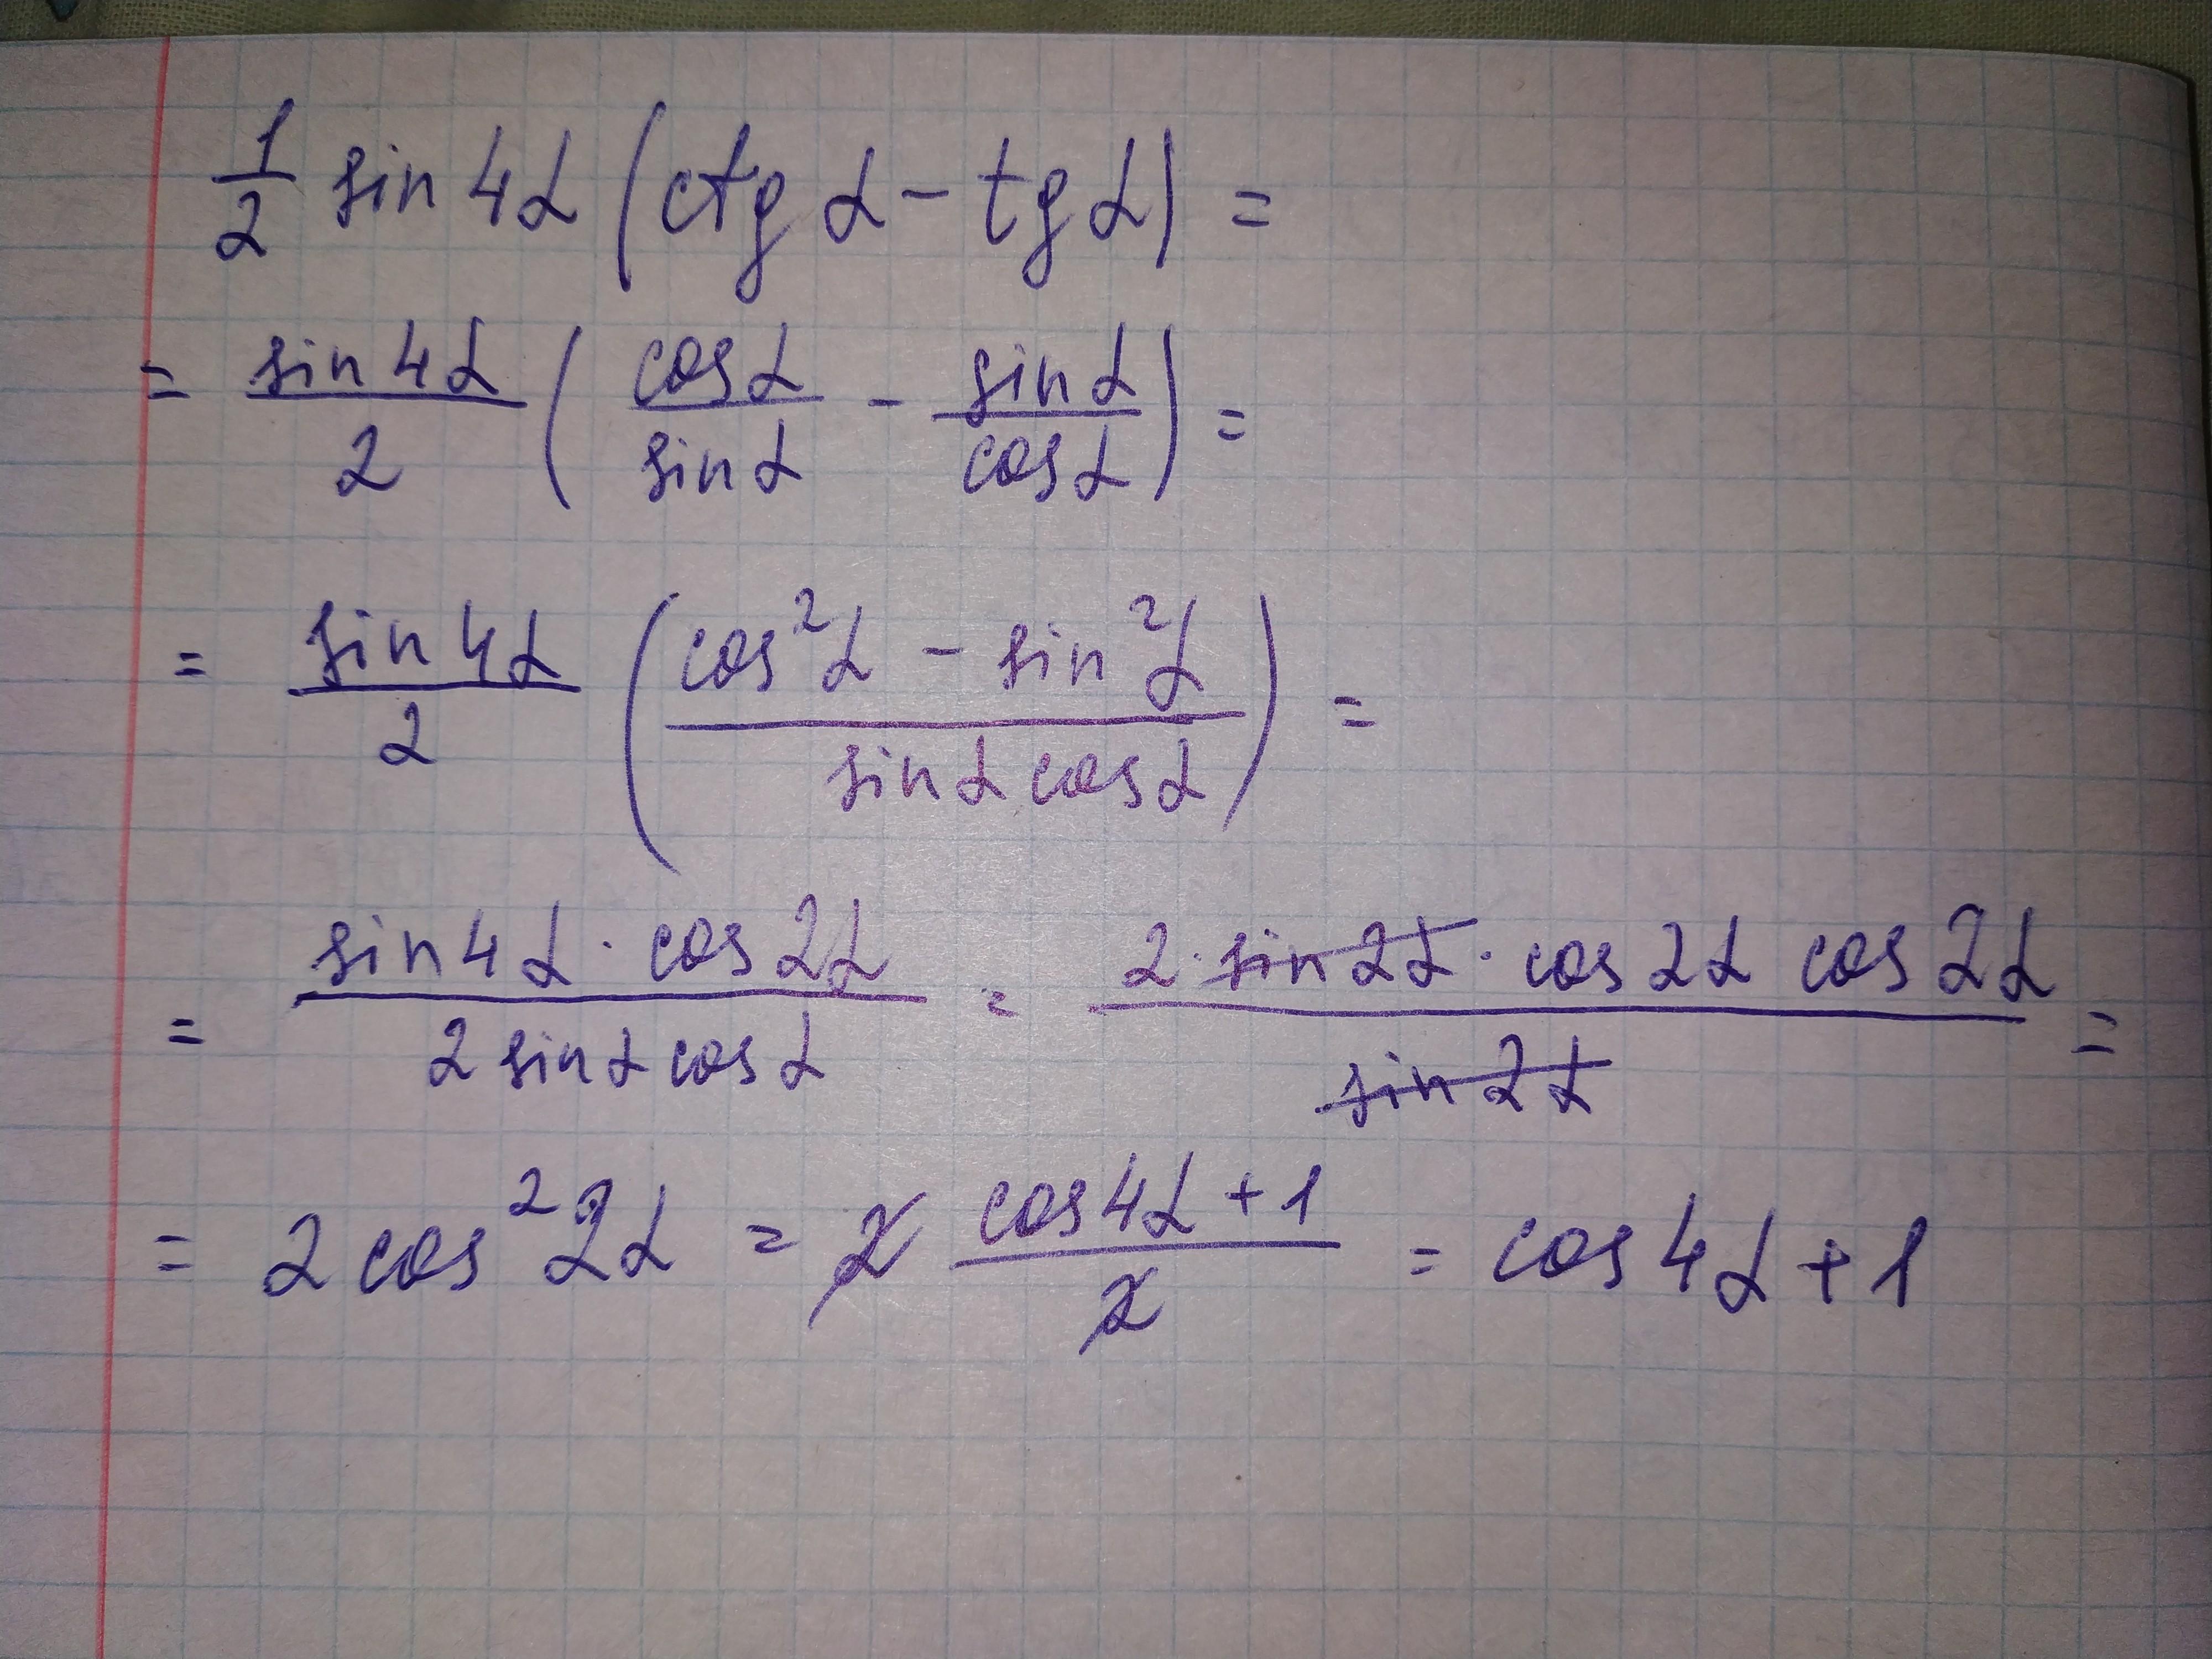 1/2 sin 4α (ctg α - tg α) =
= sin 4α / 2 ( cos α / sin α - sin α / cos α ) =
= sin 4α / 2 ( cos²α - sin²α / sin α cos α ) =
= sin 4α · cos 2α / 2 sin α cos α = 2 · sin 2α · cos 2α cos 2α / sin 2α =
= 2 cos² 2α = 2 cos 4α + 1 / 2 = cos 4α + 1